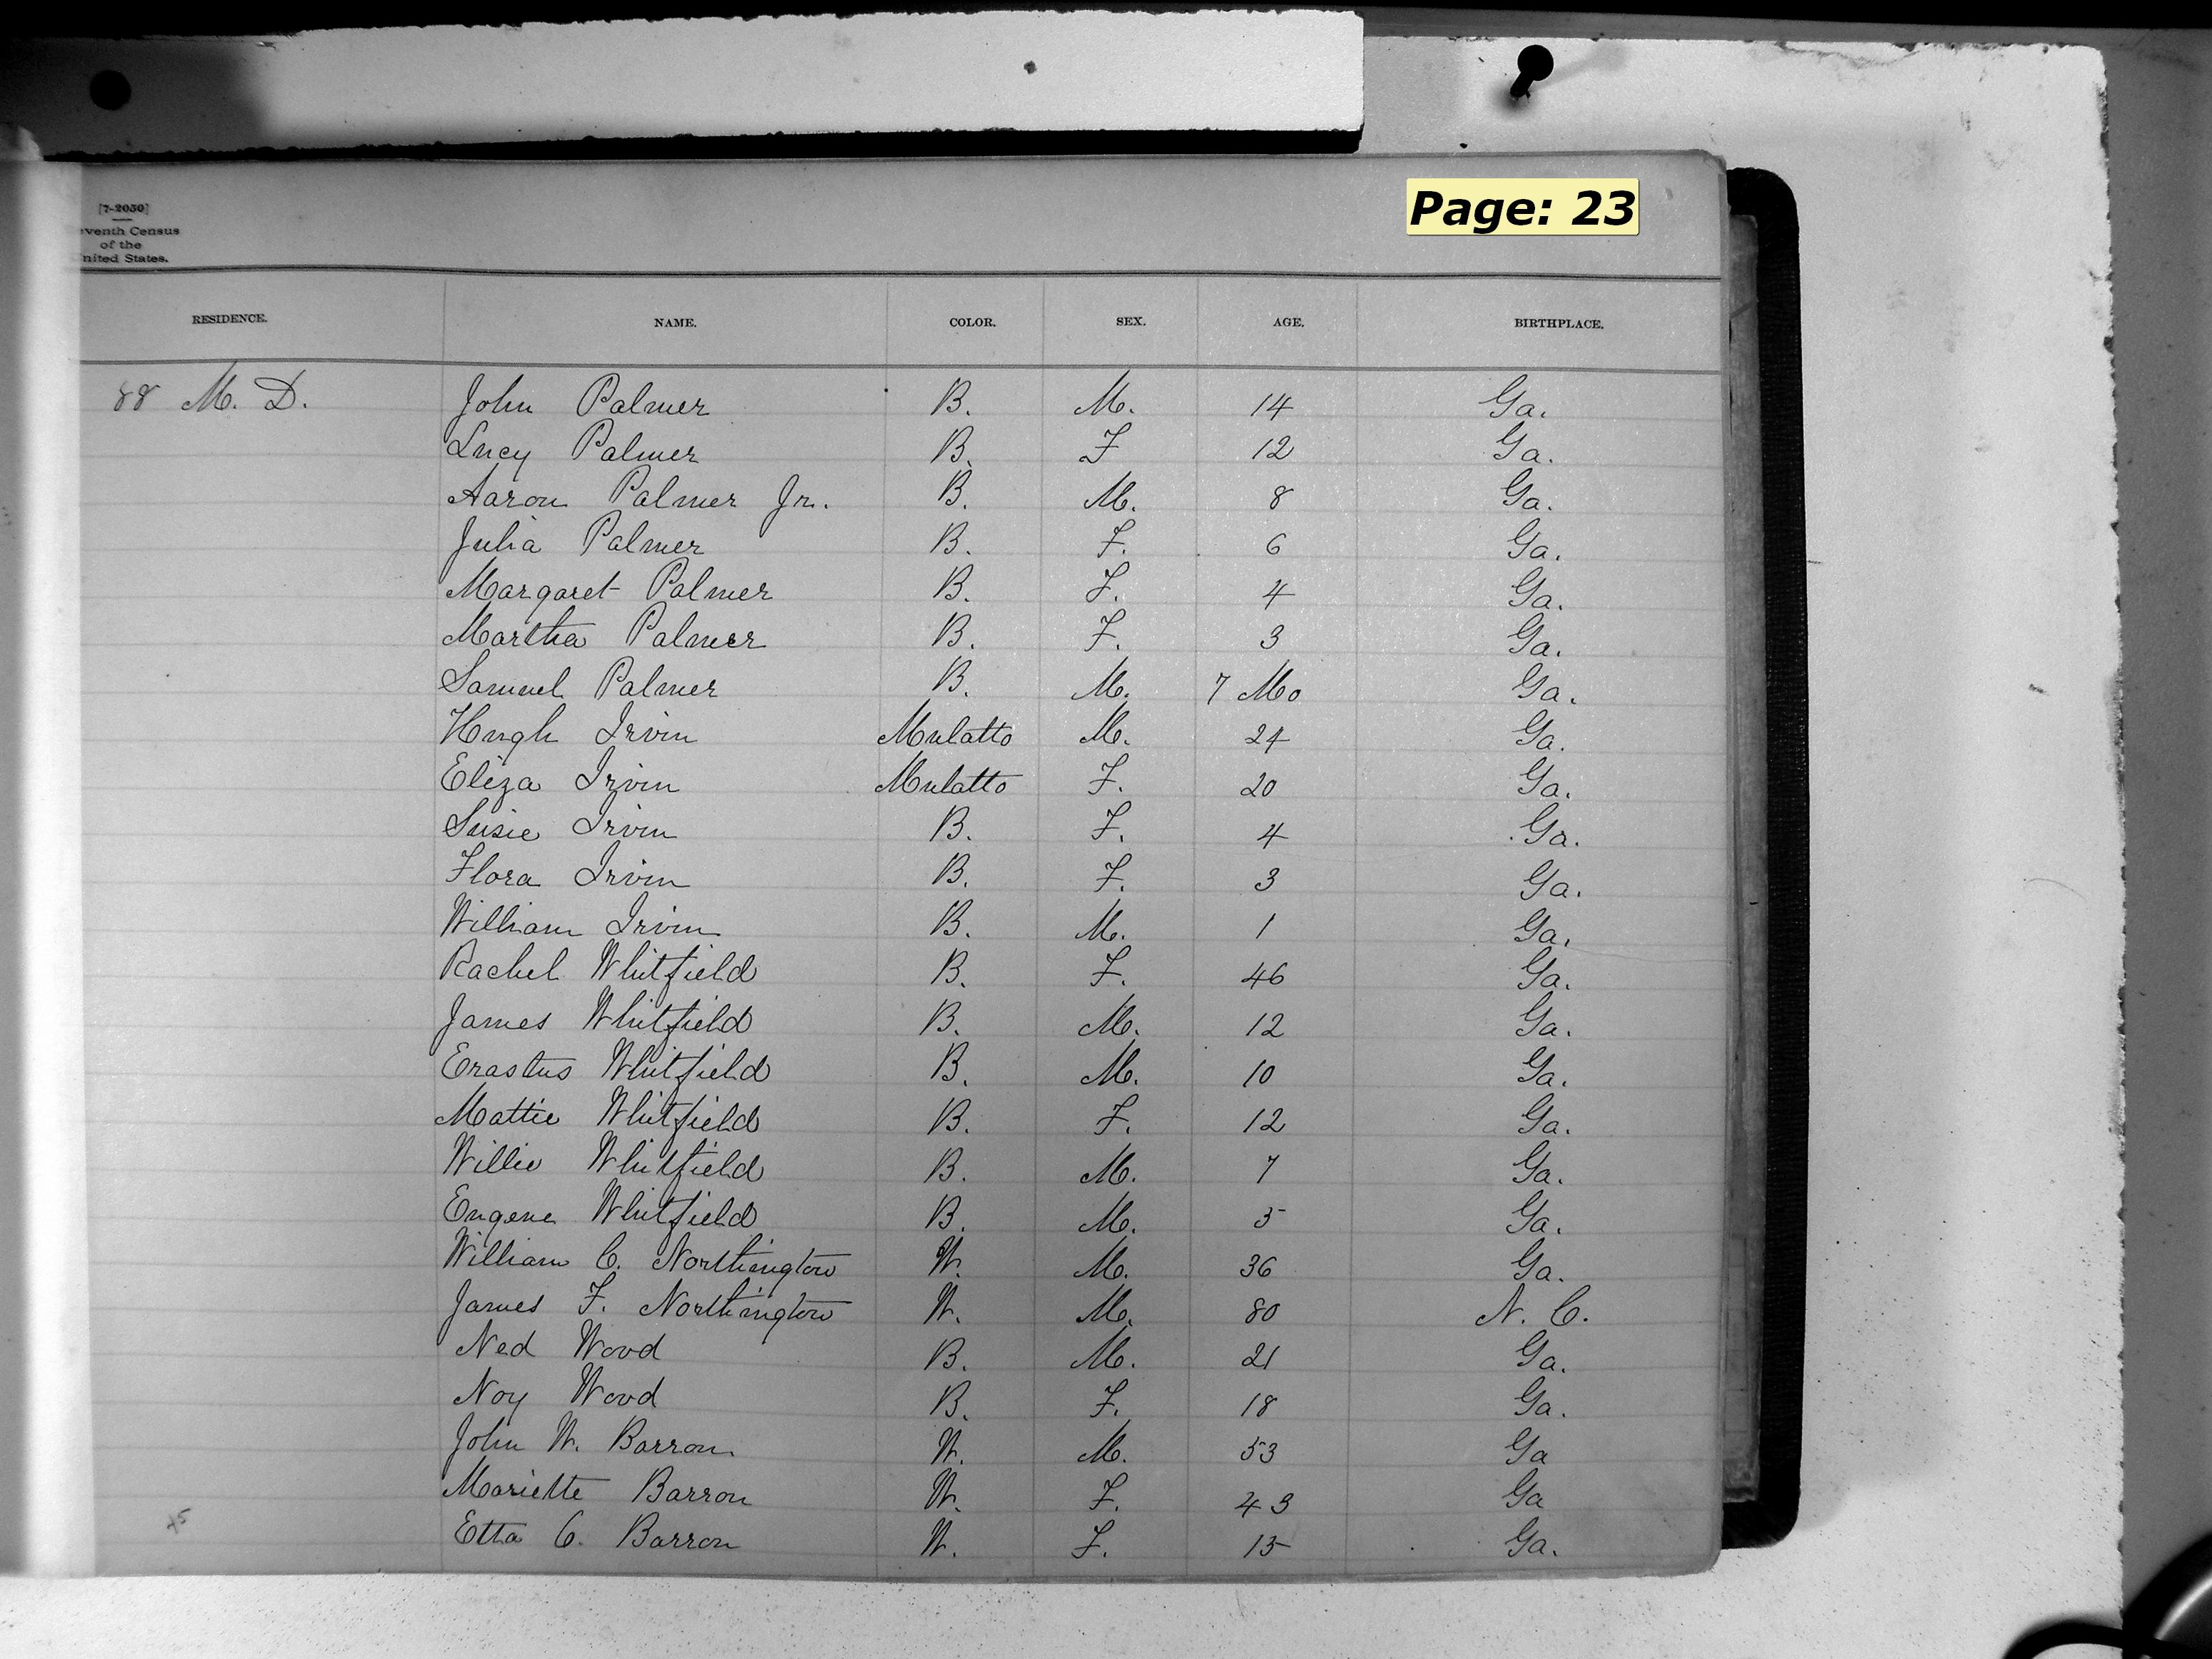 Page: 23
[7-2050]
eventh Census
of the
nited States.
RESIDENCE. NAME. COLOR. SEX. AGE. BIRTHPLACE.
88 M. D. John Palmer B. M. 14 Ga.
Lucy Palmer B. F 12 Ga.
Aaron Palmer Jr. B. M. 8 Ga.
Julia Palmer B. F. 6 Ga.
Margaret Palmer B. F. 4 Ga.
Martha Palmer B. F. 3 Ga.
Samuel Palmer B. M. 7 Mo Ga.
Hugh Irvin Mulatto M. 24 Ga.
Eliza Irvin Mulatto F. 20 Ga.
Susie Irvin B. F. 4 Ga.
Flora Irvin B. F. 3 Ga.
William Irvin B. M. 1 Ga.
Rachel Whitfield B. F. 46 Ga.
James Whitfield B. M. 12 Ga.
Erastus Whitfield B. M. 10 Ga.
Mattie Whitfield B. F. 12 Ga.
Willie Whitfield B. M. 7 Ga.
Eugene Whitfield B. M. 5 Ga.
William C. Northington W. M. 36 Ga.
James F. Northington W. M. 80 N. C.
Ned Wood B. M. 21 Ga.
Noy Wood B. F. 18 Ga.
John W. Barron W. M. 53 Ga
Mariette Barron W. F. 43 Ga
Etta C. Barron W. F. 15 Ga.